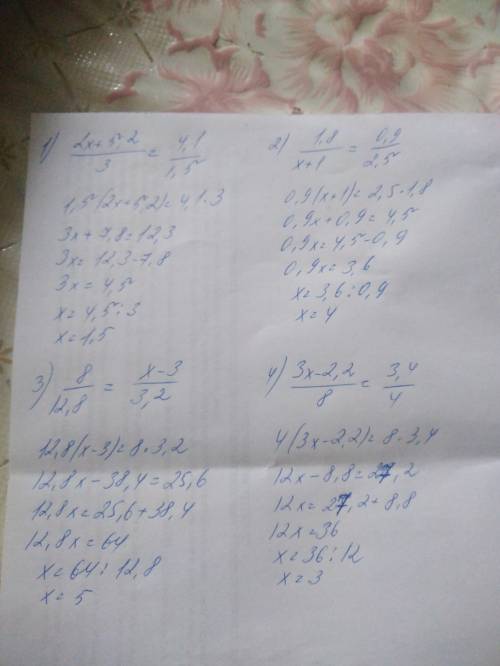 1) (2x+5,2)/3 = 4,1/1,5
1,5(2x+5,2)=4,1·3
3x+7,8=12,3
3x=12,3-7,8
3x=4,5
x=4,5:3
x=1,5
2) 1,8/(x+1) = 0,9/2,5
0,9(x+1)=2,5·1,8
0,9x+0,9=4,5
0,9x=4,5-0,9
0,9x=3,6
x=3,6:0,9
x=4
3) 8/12,8 = (x-3)/3,2
12,8(x-3)=8·3,2
12,8x-38,4=25,6
12,8x=25,6+38,4
12,8x=64
x=64:12,8
x=5
4) (3x-2,2)/8 = 3,4/4
4(3x-2,2)=8·3,4
12x-8,8=27,2
12x=27,2+8,8
12x=36
x=36:12
x=3